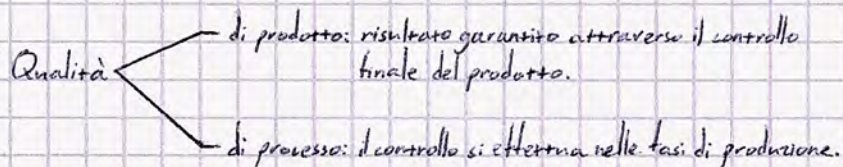 di prodotto: risultato garantito attraverso il controllo
finale del prodotto.
Qualità
di processo: il controllo si effettua nelle fasi di produzione.